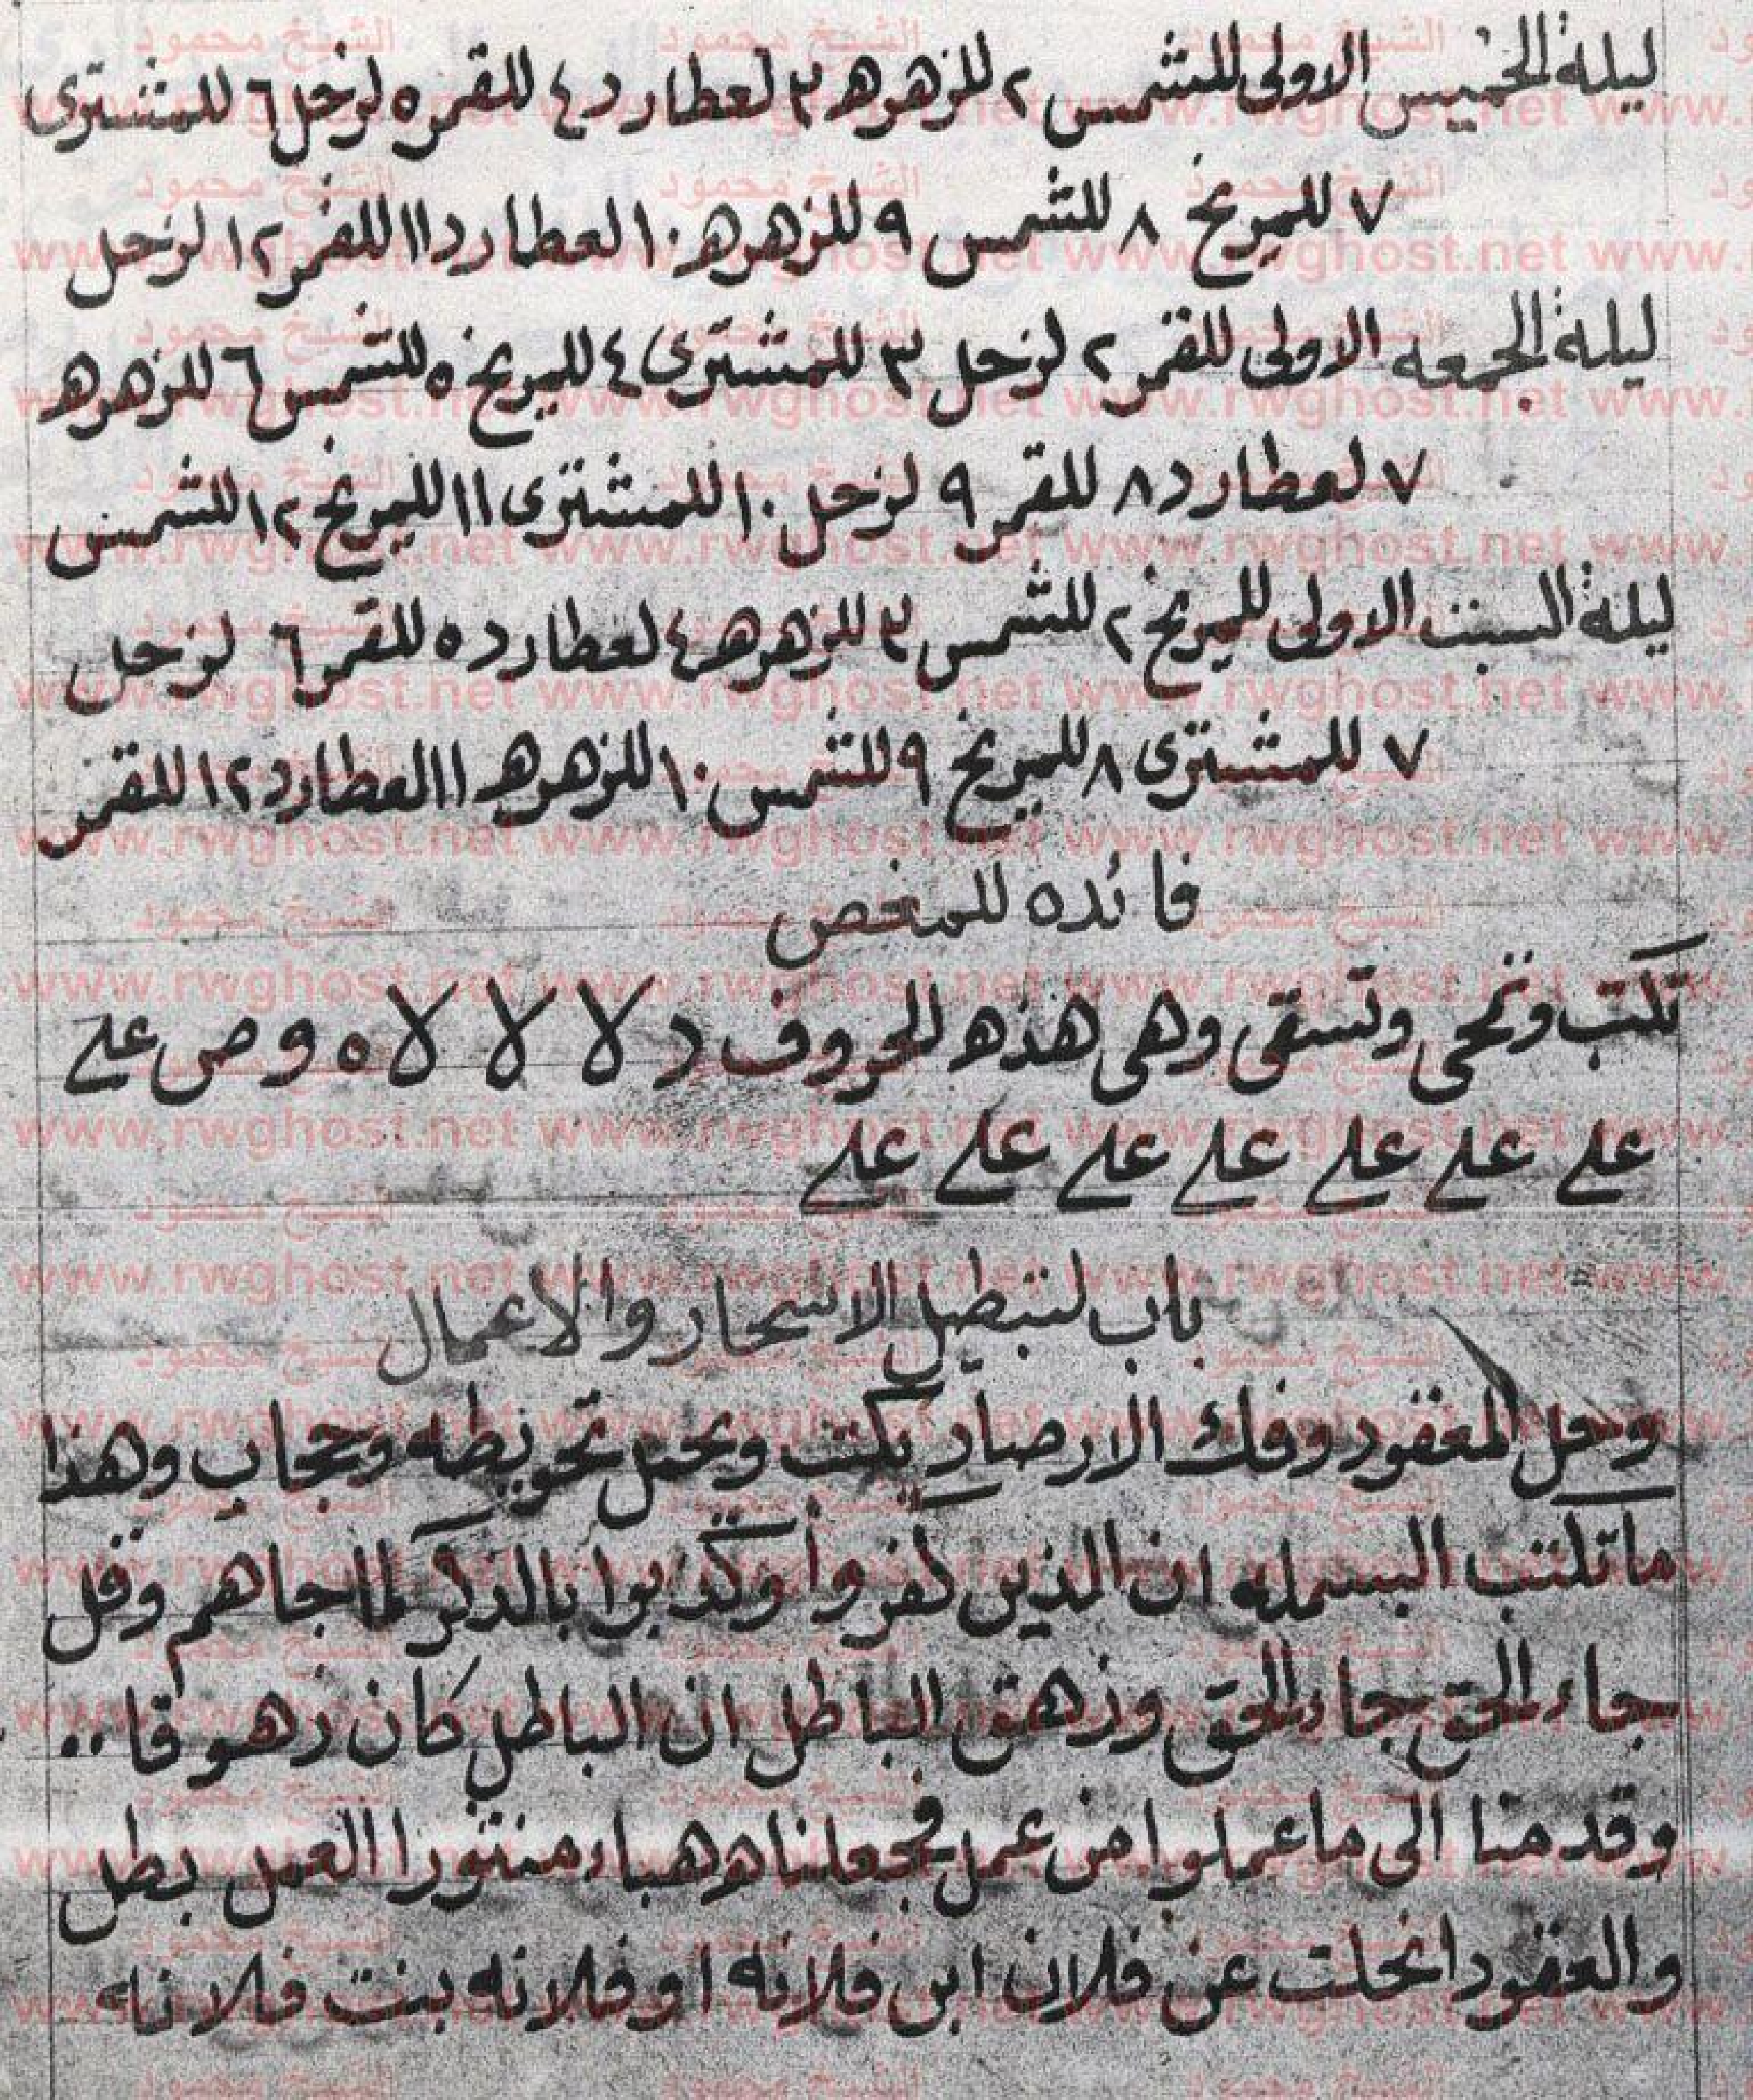 ليلة الخميس الاولى للشمس ٢ للزهره ٣ لعطارد ٤ للقمر ٥ لزحل ٦ للمشترى
٧ للمريخ ٨ للشمس ٩ للزهره ١٠ لعطارد ١١ للقمر ١٢ لزحل
ليلة الجمعه الاولى للقمر ٢ لزحل ٣ للمشترى ٤ للمريخ ٥ للشمس ٦ للزهره
٧ لعطارد ٨ للقمر ٩ لزحل ١٠ للمشترى ١١ للمريخ ١٢ للشمس
ليلة السبت الاولى للمريخ ٢ للشمس ٣ للزهره ٤ لعطارد ٥ للقمر ٦ لزحل
٧ للمشترى ٨ للمريخ ٩ للشمس ١٠ للزهره ١١ لعطارد ١٢ للقمر
فائده للمغص
تكتب وتمحى وتسقى وهى هذه الحروف د لا لا لا ٥ و ص علے
علے علے علے علے علے علے علے
باب لتبطيل الاسحار والاعمال
وحل المعقود وفك الارصاد يكتب ويحمل تحويطه وحجاب وهذا
ما تكتب البسمله ان الذين كفروا وكذبوا بالذكر لما جاهم وقل
جاء الحق جاء الحق وزهق الباطل ان الباطل كان زهوقا ..
وقدمنا الى ما عملوا من عمل فجعلناه هباء منثورا العمل بطل
والعقود انحلت عن فلان ابن فلانة او فلانه بنت فلانه
الشيخ محمود
www.rwghost.net